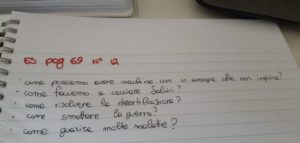 ES pag 69 N° 12
· come possiamo avere macchine con energia che non inquina?
· come facciamo a cacciare
· come risolvere la desertificazione?
· come smettere la guerra?
· come guarire molte malattie?